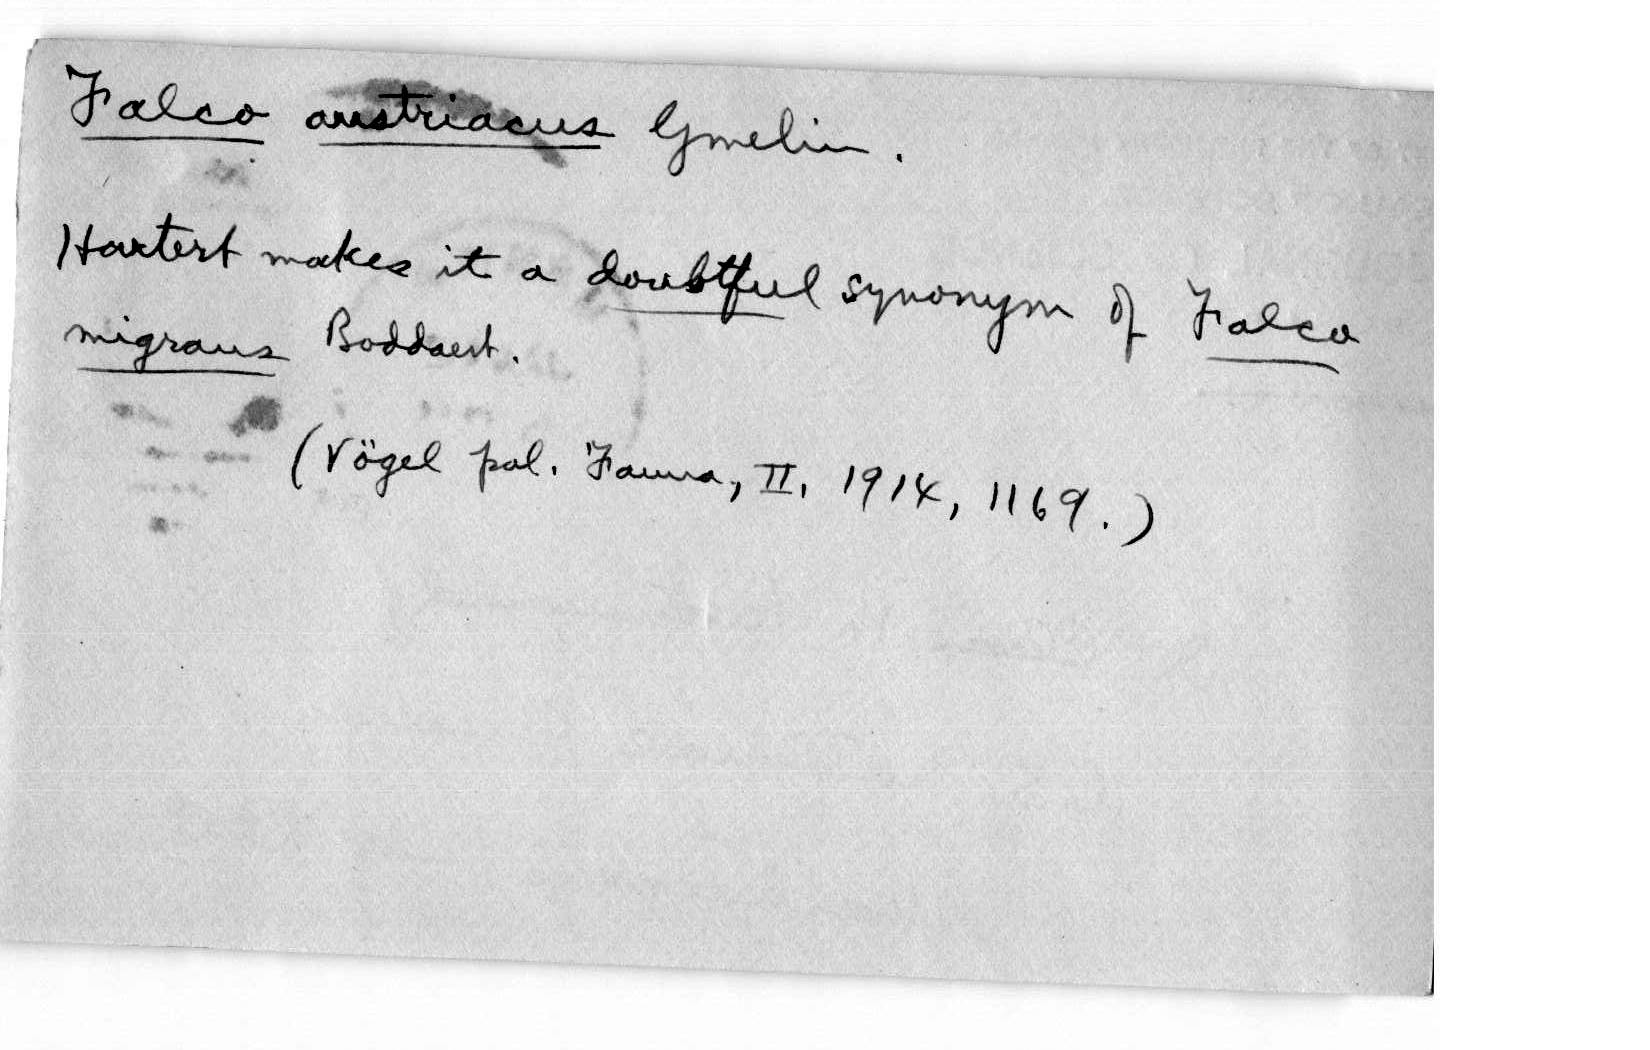 Falco austriacus Gmelin.
Hartert makes it a doubtful synonym of Falco
migrans Boddaert.
(Vögel pal. Fauna, II, 1914, 1169.)